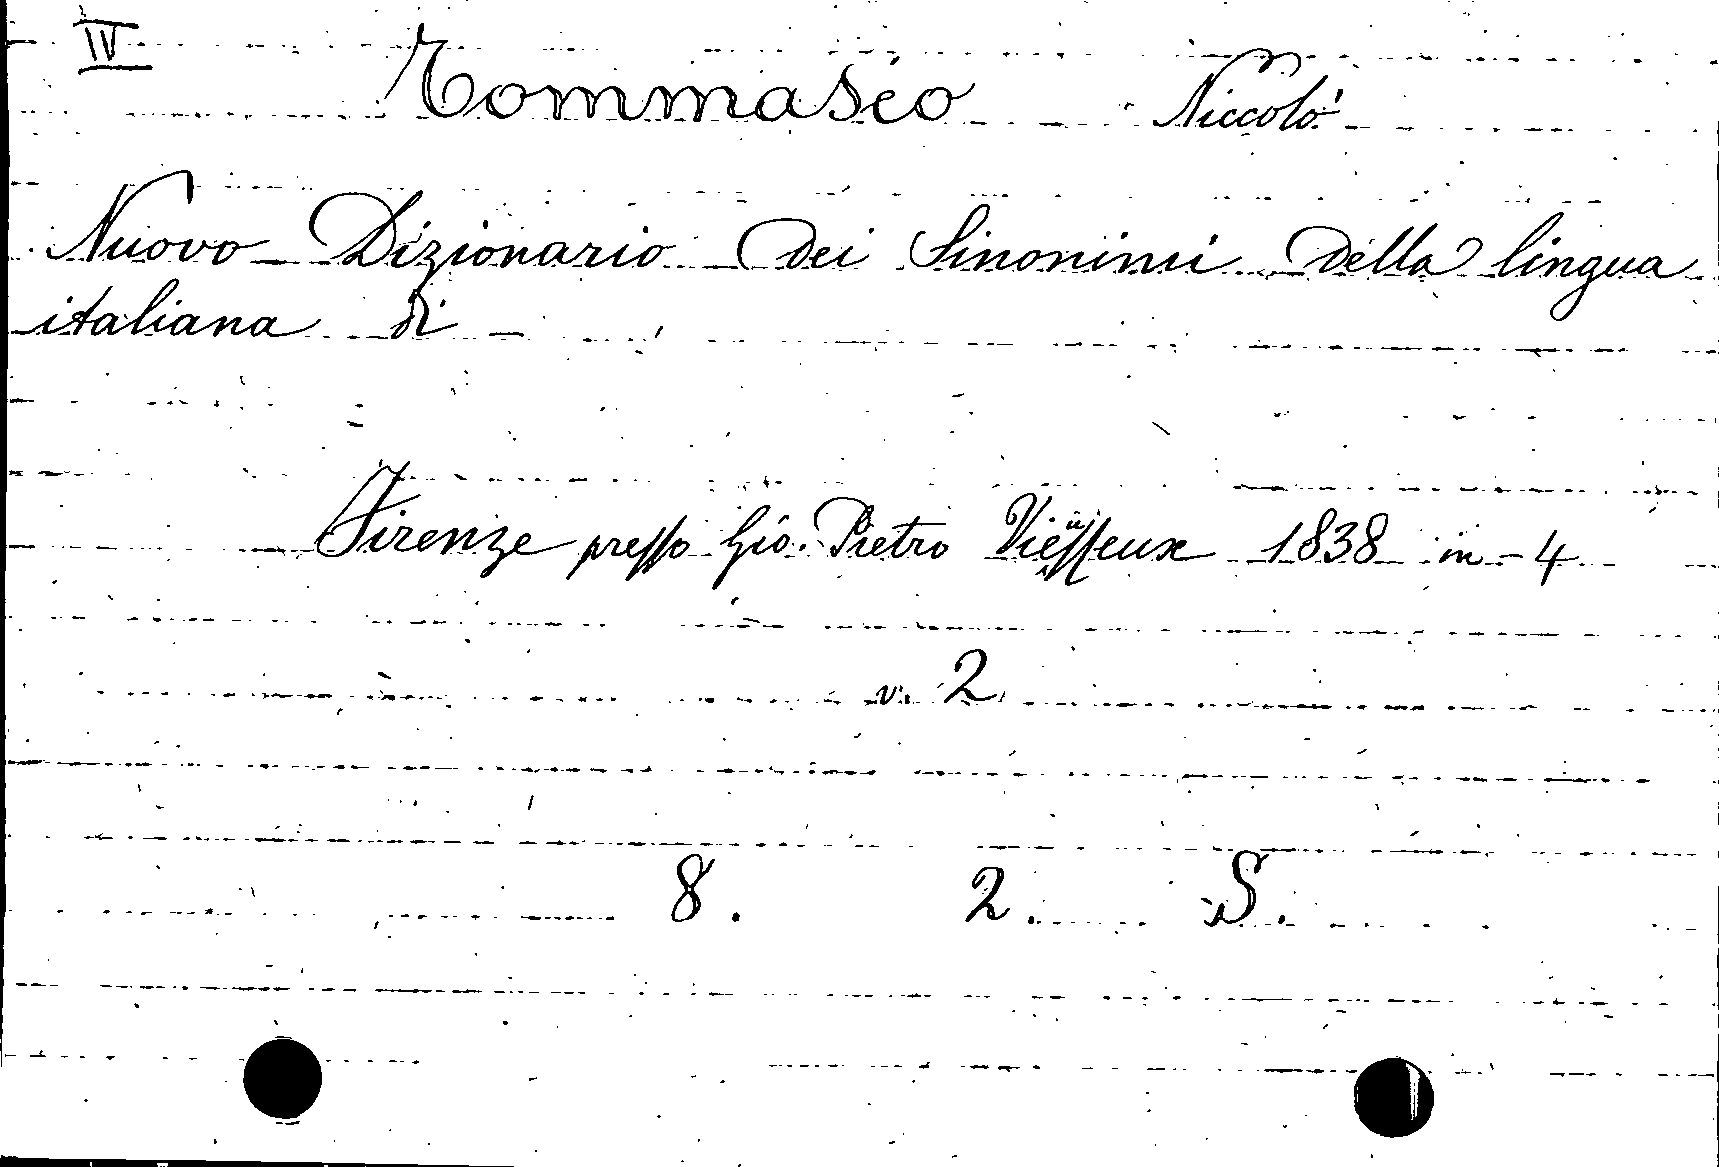 IV
Tommaseo Niccolò
Nuovo Dizionario dei Sinonimi della lingua
italiana di —
Firenze presso Gio. Pietro Viesseux 1838 in-4
v. 2
8. 2. S.